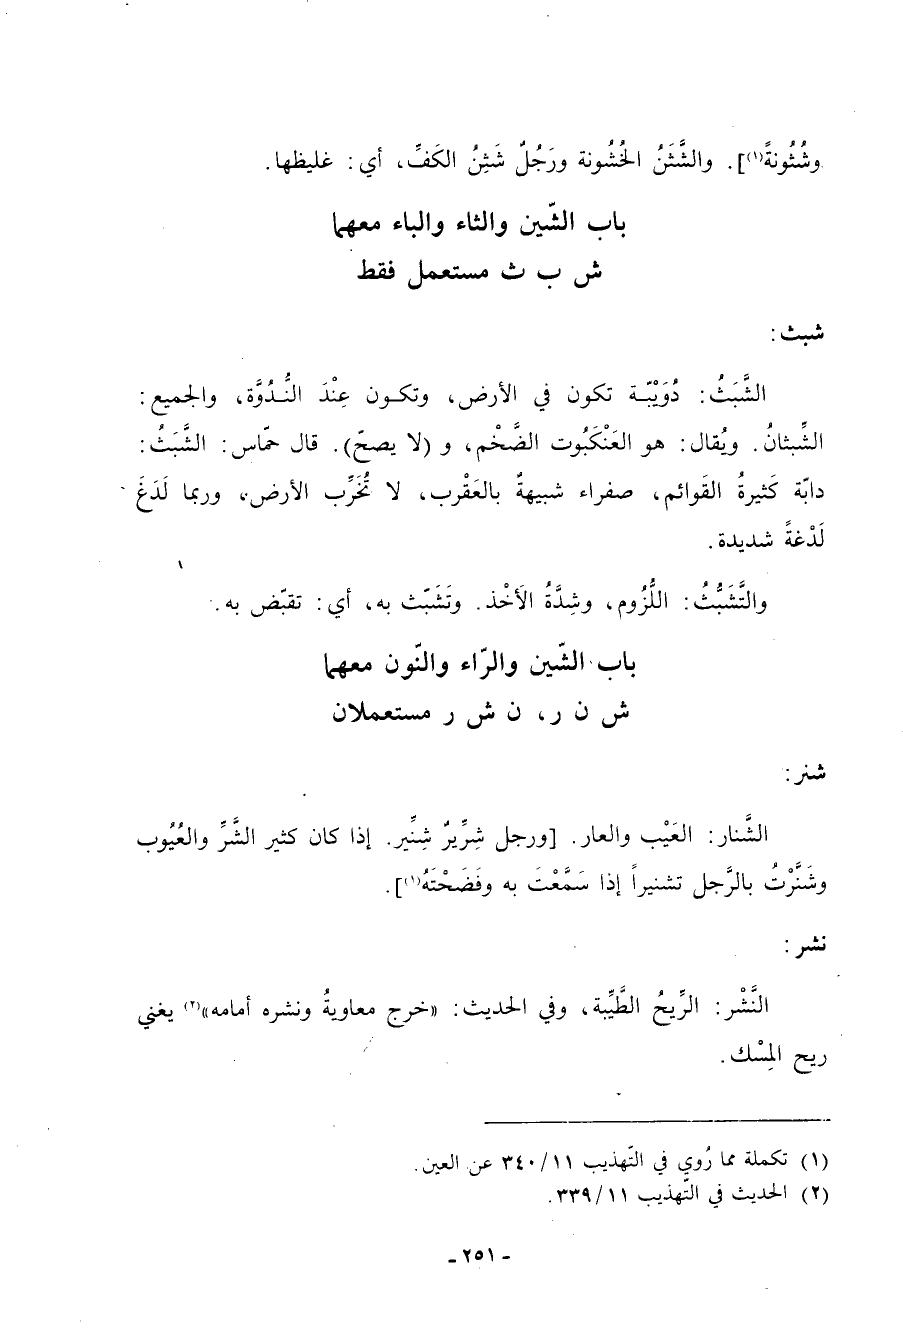 وشُثُونةً(١)]. والشَّثَنُ الخُشُونة ورَجُلٌ شَثِنُ الكَفِّ، أي: غليظها.
باب الشّين والثاء والباء معهما
ش ب ث مستعمل فقط
شبث:
الشَّبَثُ: دُوَيْبّة تكون في الأرض، وتكون عِنْدَ النُّدُوَّة، والجميع:
الشِّبثانُ. ويُقال: هو العَنْكَبُوت الضَّخْم، و (لا يصحّ). قال حمّاس: الشَّبَثُ:
دابّة كَثيرةُ القَوائم، صفراء شبيهةٌ بالعَقْرب، لا تُخَرِّب الأرض، وربما لَدَغَ
لَدْغةً شديدة.
والتَّشَبُّثُ: اللُّزُوم، وشِدَّةُ الأَخْذ. وتَشَبّث به، أي: تقبّض به.
باب الشّين والرّاء والنّون معهما
ش ن ر، ن ش ر مستعملان
شنر:
الشَّنار: العَيْب والعار. [ورجل شِرِّيرٌ شِنِّير. إذا كان كثير الشَّرِّ والعُيُوب
وشَنَّرْتُ بالرَّجل تشنيراً إذا سَمَّعْتَ به وفَضَحْتَهُ(١)].
نشر:
النَّشْر: الرِّيحُ الطَّيِّبة، وفي الحديث: «خرج معاويةُ ونشره أمامه»(٢) يغني
ريح المِسْك.
(١) تكملة مما رُوي في التّهذيب ١١/ ٣٤٠ عن العين.
(٢) الحديث في التّهذيب ١١/ ٣٣٩.
- ٢٥١ -